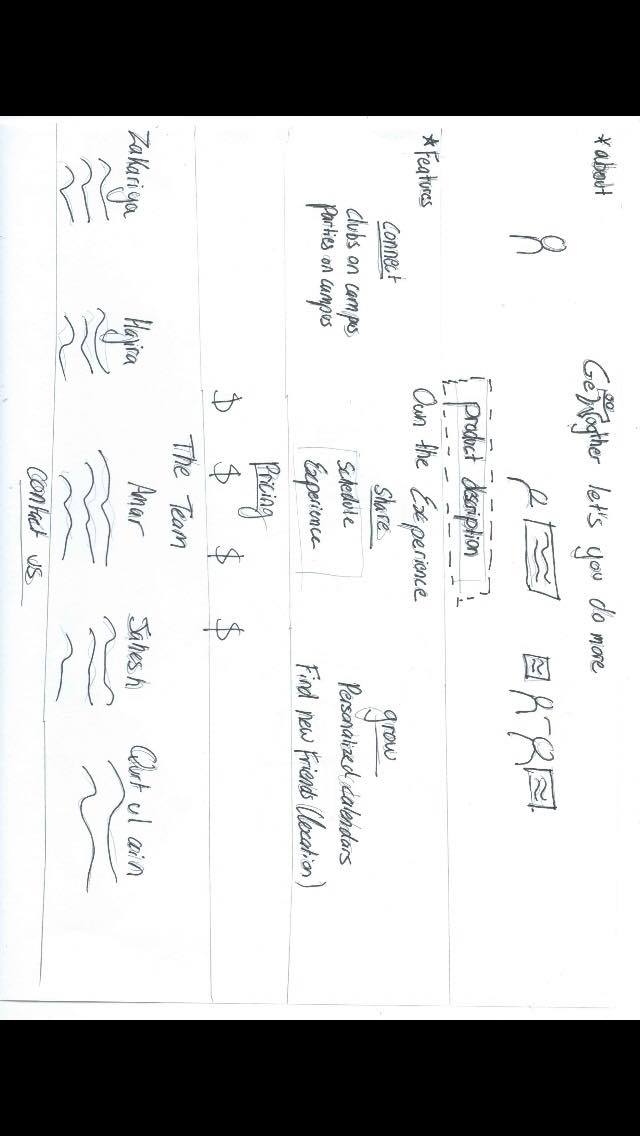 *about
GeTTogther let's you do more
product description
*Features
Own the Experience
connect
share
grow
clubs on campus
Parties on campus
Schedule
Experience
Personalized calendars
Find new Friends (location)
Pricing
$ $ $ $
The Team
Zakariya Hajira Amar Jahesh Qurt ul ain
contact us